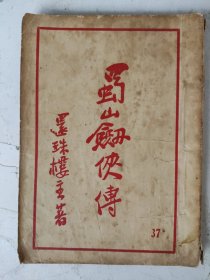 蜀山劍俠傳
還珠樓主著
37